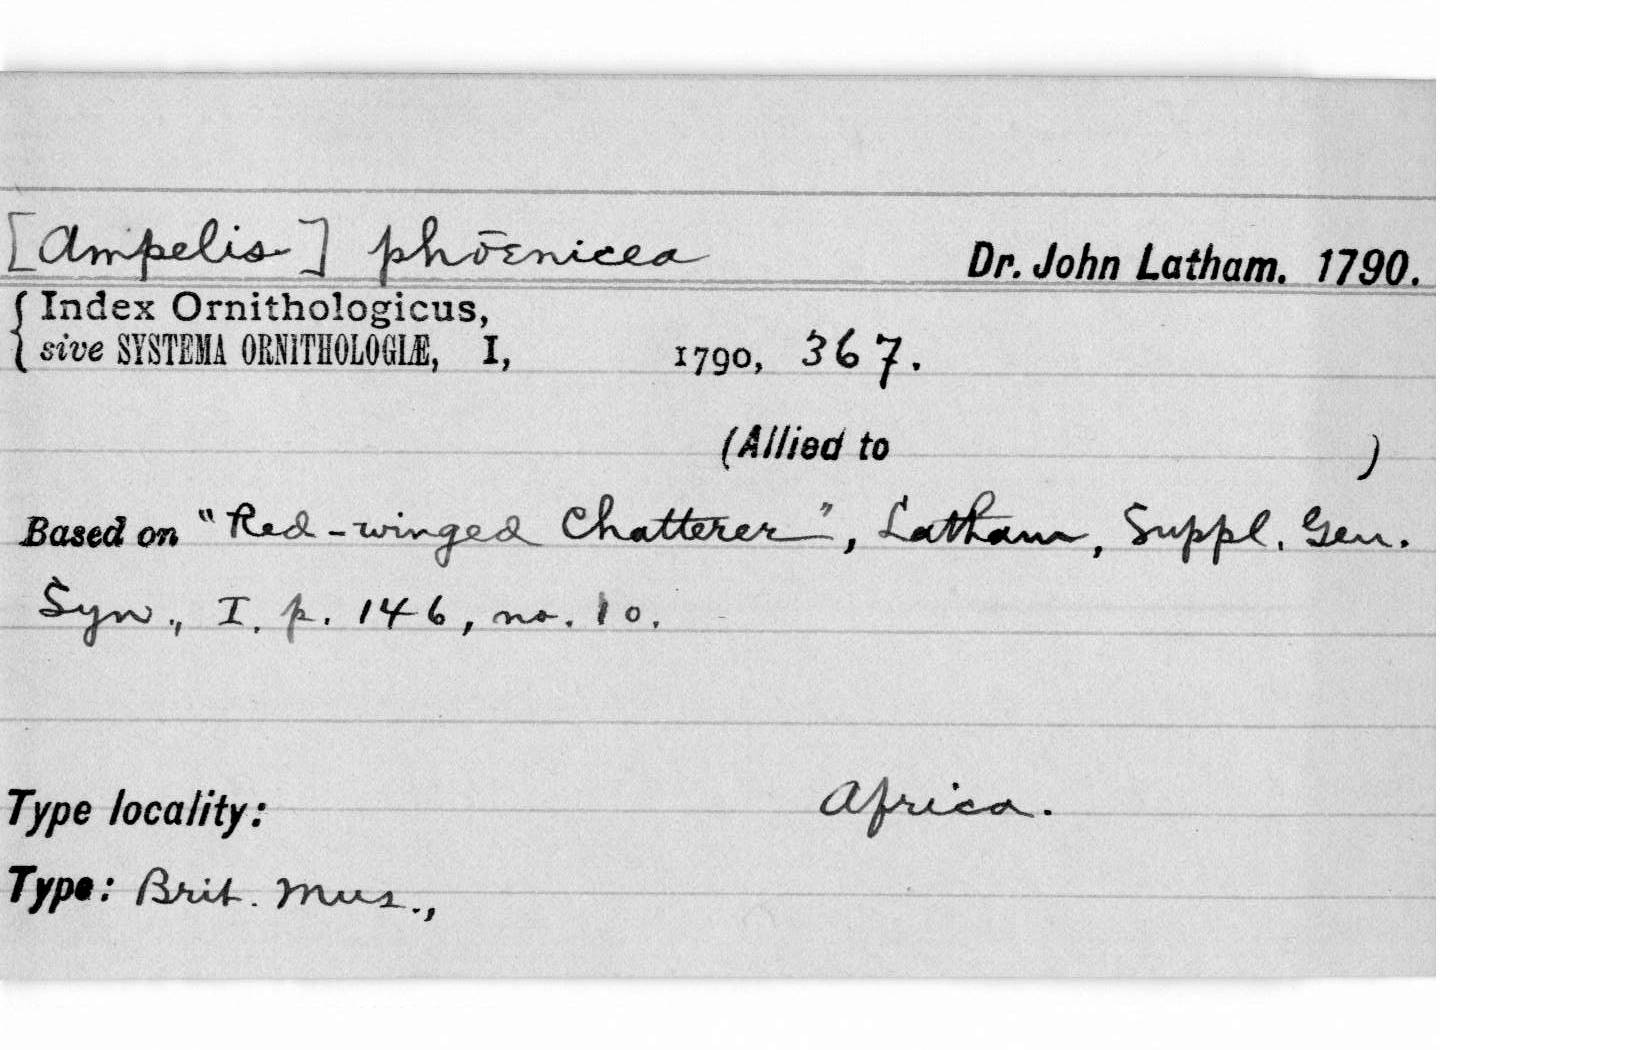 [Ampelis] phœnicea Dr. John Latham. 1790.
Index Ornithologicus,
sive SYSTEMA ORNITHOLOGIÆ, I, 1790, 367.
(Allied to )
Based on "Red-winged Chatterer", Latham, Suppl. Gen.
Syn., I. p. 146, no. 10.
Type locality: Africa.
Type: Brit. Mus.,